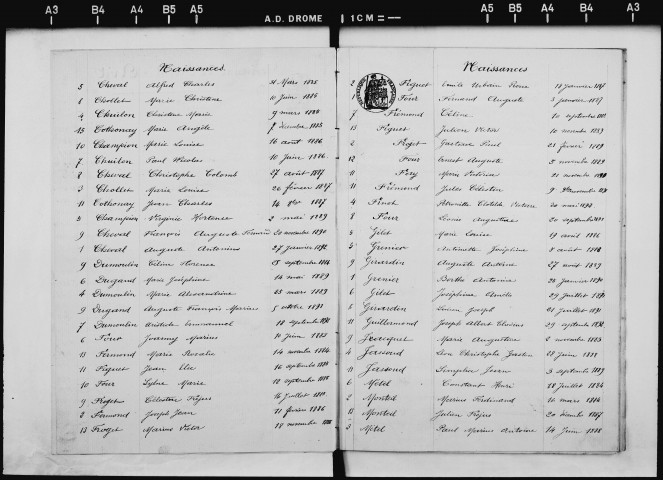 A3 B4 A4 B5 A5 A.D. DROME 1CM= A5 B5 A4 B4 A3
Naissances
5 Cheval Alfred Charles 31 Mars 1885
6 Chollet Marie Christine 10 Juin 1886
4 Chuilon Christine Marie 9 mars 1888
15 Cothonay Marie Angèle 7 décembre 1885
10 Champion Marie Louise 16 août 1886
7 Chuilon Paul Nicolas 10 Juin 1886
8 Cheval Christophe Colomb 27 août 1887
3 Chollet Marie Louise 20 février 1887
11 Cothonay Jean Charles 14 8bre 1887
5 Champion Virginie Hortense 2 mai 1889
9 Cheval François Auguste 20 novembre 1890
1 Cheval Auguste Antonin 27 janvier 1892
9 Dumoulin Céline Florence 15 septembre 1884
6 Dugand Marie Joséphine 14 mai 1889
4 Dumoulin Marie Alexandrine 25 mars 1889
9 Dugand Auguste François Marius 5 octobre 1891
7 Dumoulin Aristide Emmanuel 18 septembre
6 Four Joanny Marius 10 Juin 1883
13 Fémond Marie Rosalie 14 novembre 1884
11 Figuet Jean Elie 16 septembre 1884
10 Four Sylvie Marie 12 septembre 1885
9 Froget Célestine 16 Juillet
2 Fémond Joseph Jean 21 février 1886
13 Froget Marius Victor 18 novembre
Naissances
2 Figuet Emile Urbain 18 janvier 1887
1 Four Fémond Auguste 5 janvier 1887
7 Fémond Céline 10 septembre
13 Figuet Julien Victor 10 novembre 1889
2 Froget Gustave Paul 21 février 1889
12 Four Ernest Auguste 5 novembre 1889
11 Fey Marie Victorine 21 novembre 1890
11 Fémond Jules Célestin 9
4 Finot Clotilde Victorine 20 mai 1892
8 Four Léonie Augustine 20 septembre
5 Gilet Marie Louise 19 avril 1886
5 Grenier Antoinette Joséphine 8 août 1888
9 Girardin Auguste Antoine 27 août 1889
1 Grenier Berthe Antonia 26 Janvier 1890
6 Gilet Joséphine Amélie 29 Juillet 1891
5 Girardin Lucien Joseph 21 Juillet 1891
11 Guillermond Joseph Albert 29 septembre 1892
9 Jacquet Marie Augustine 6 novembre 1883
4 Jassoud Léon Christophe Gaston 28 Juin 1888
11 Jassoud Jean 5 septembre 1889
6 Métel Constant Henri 28 Juillet 1884
2 Montet Marius Ferdinand 16 mars 1884
13 Montet Julien 20 décembre 1887
3 Métel Paul Marius Antoine 14 Juin 1888